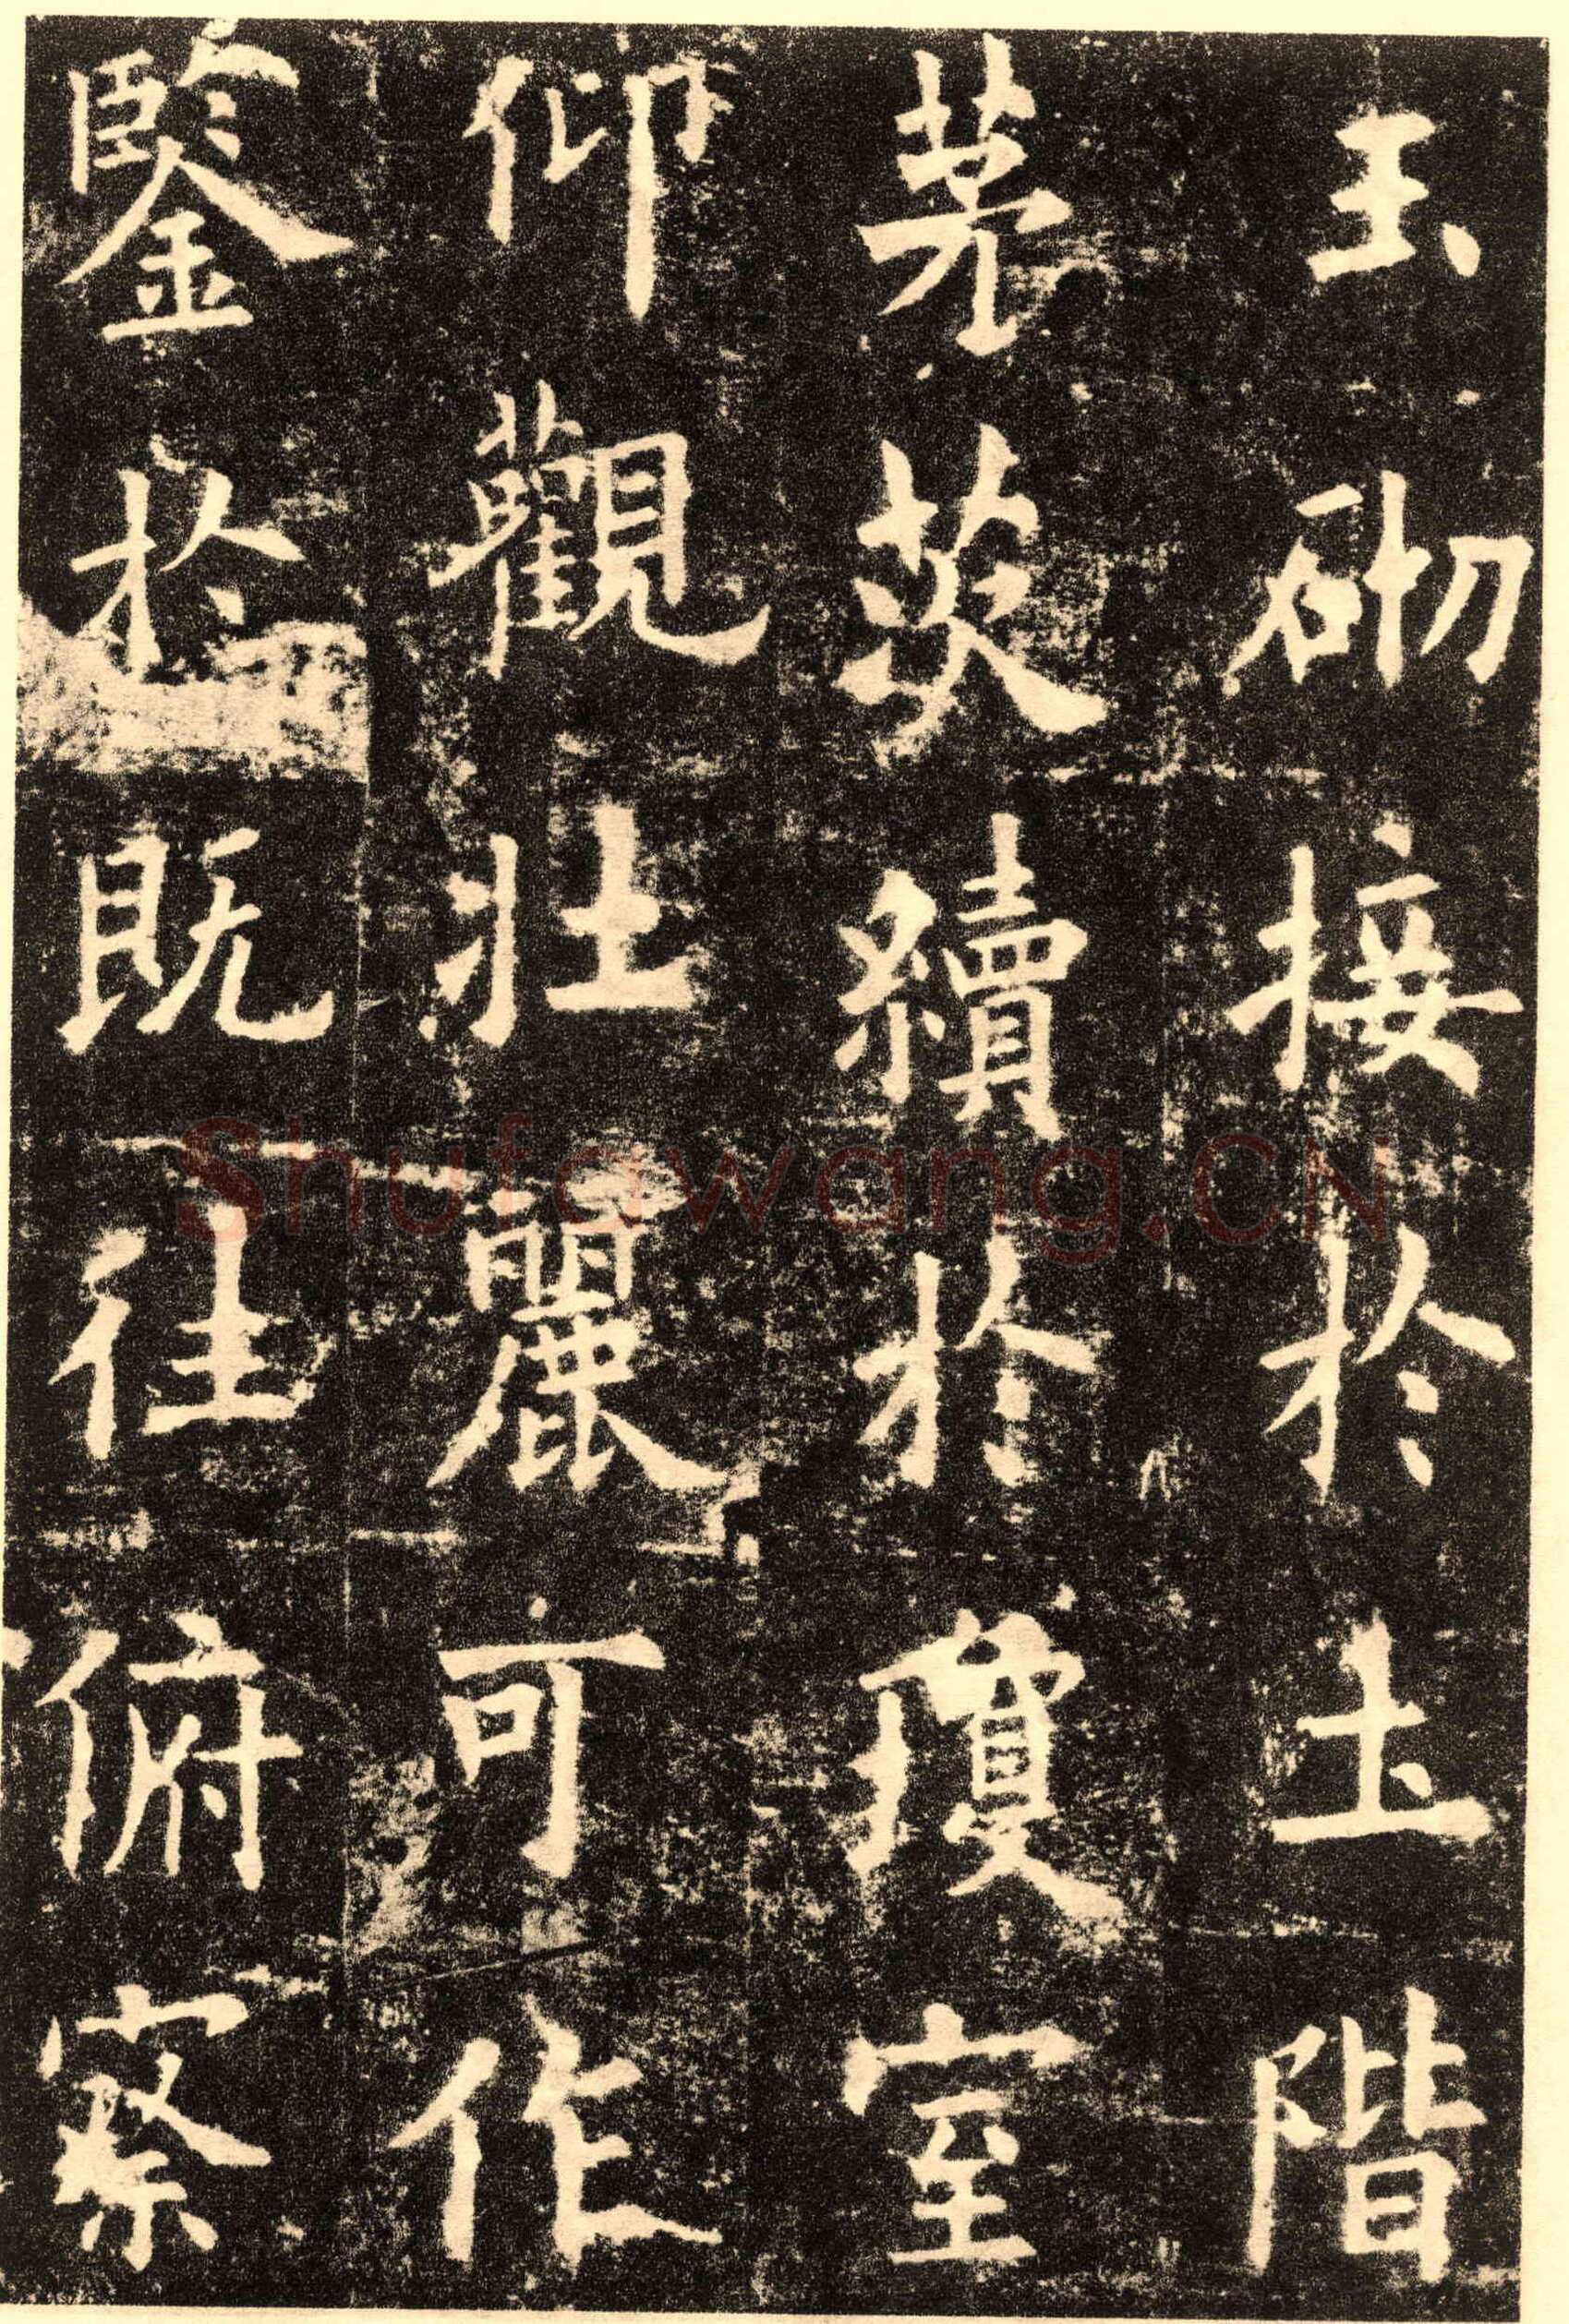 玉砌接於土階
茅茨續於瓊室
仰觀壯麗可作
鑒於既往俯察
Shufawang.CN